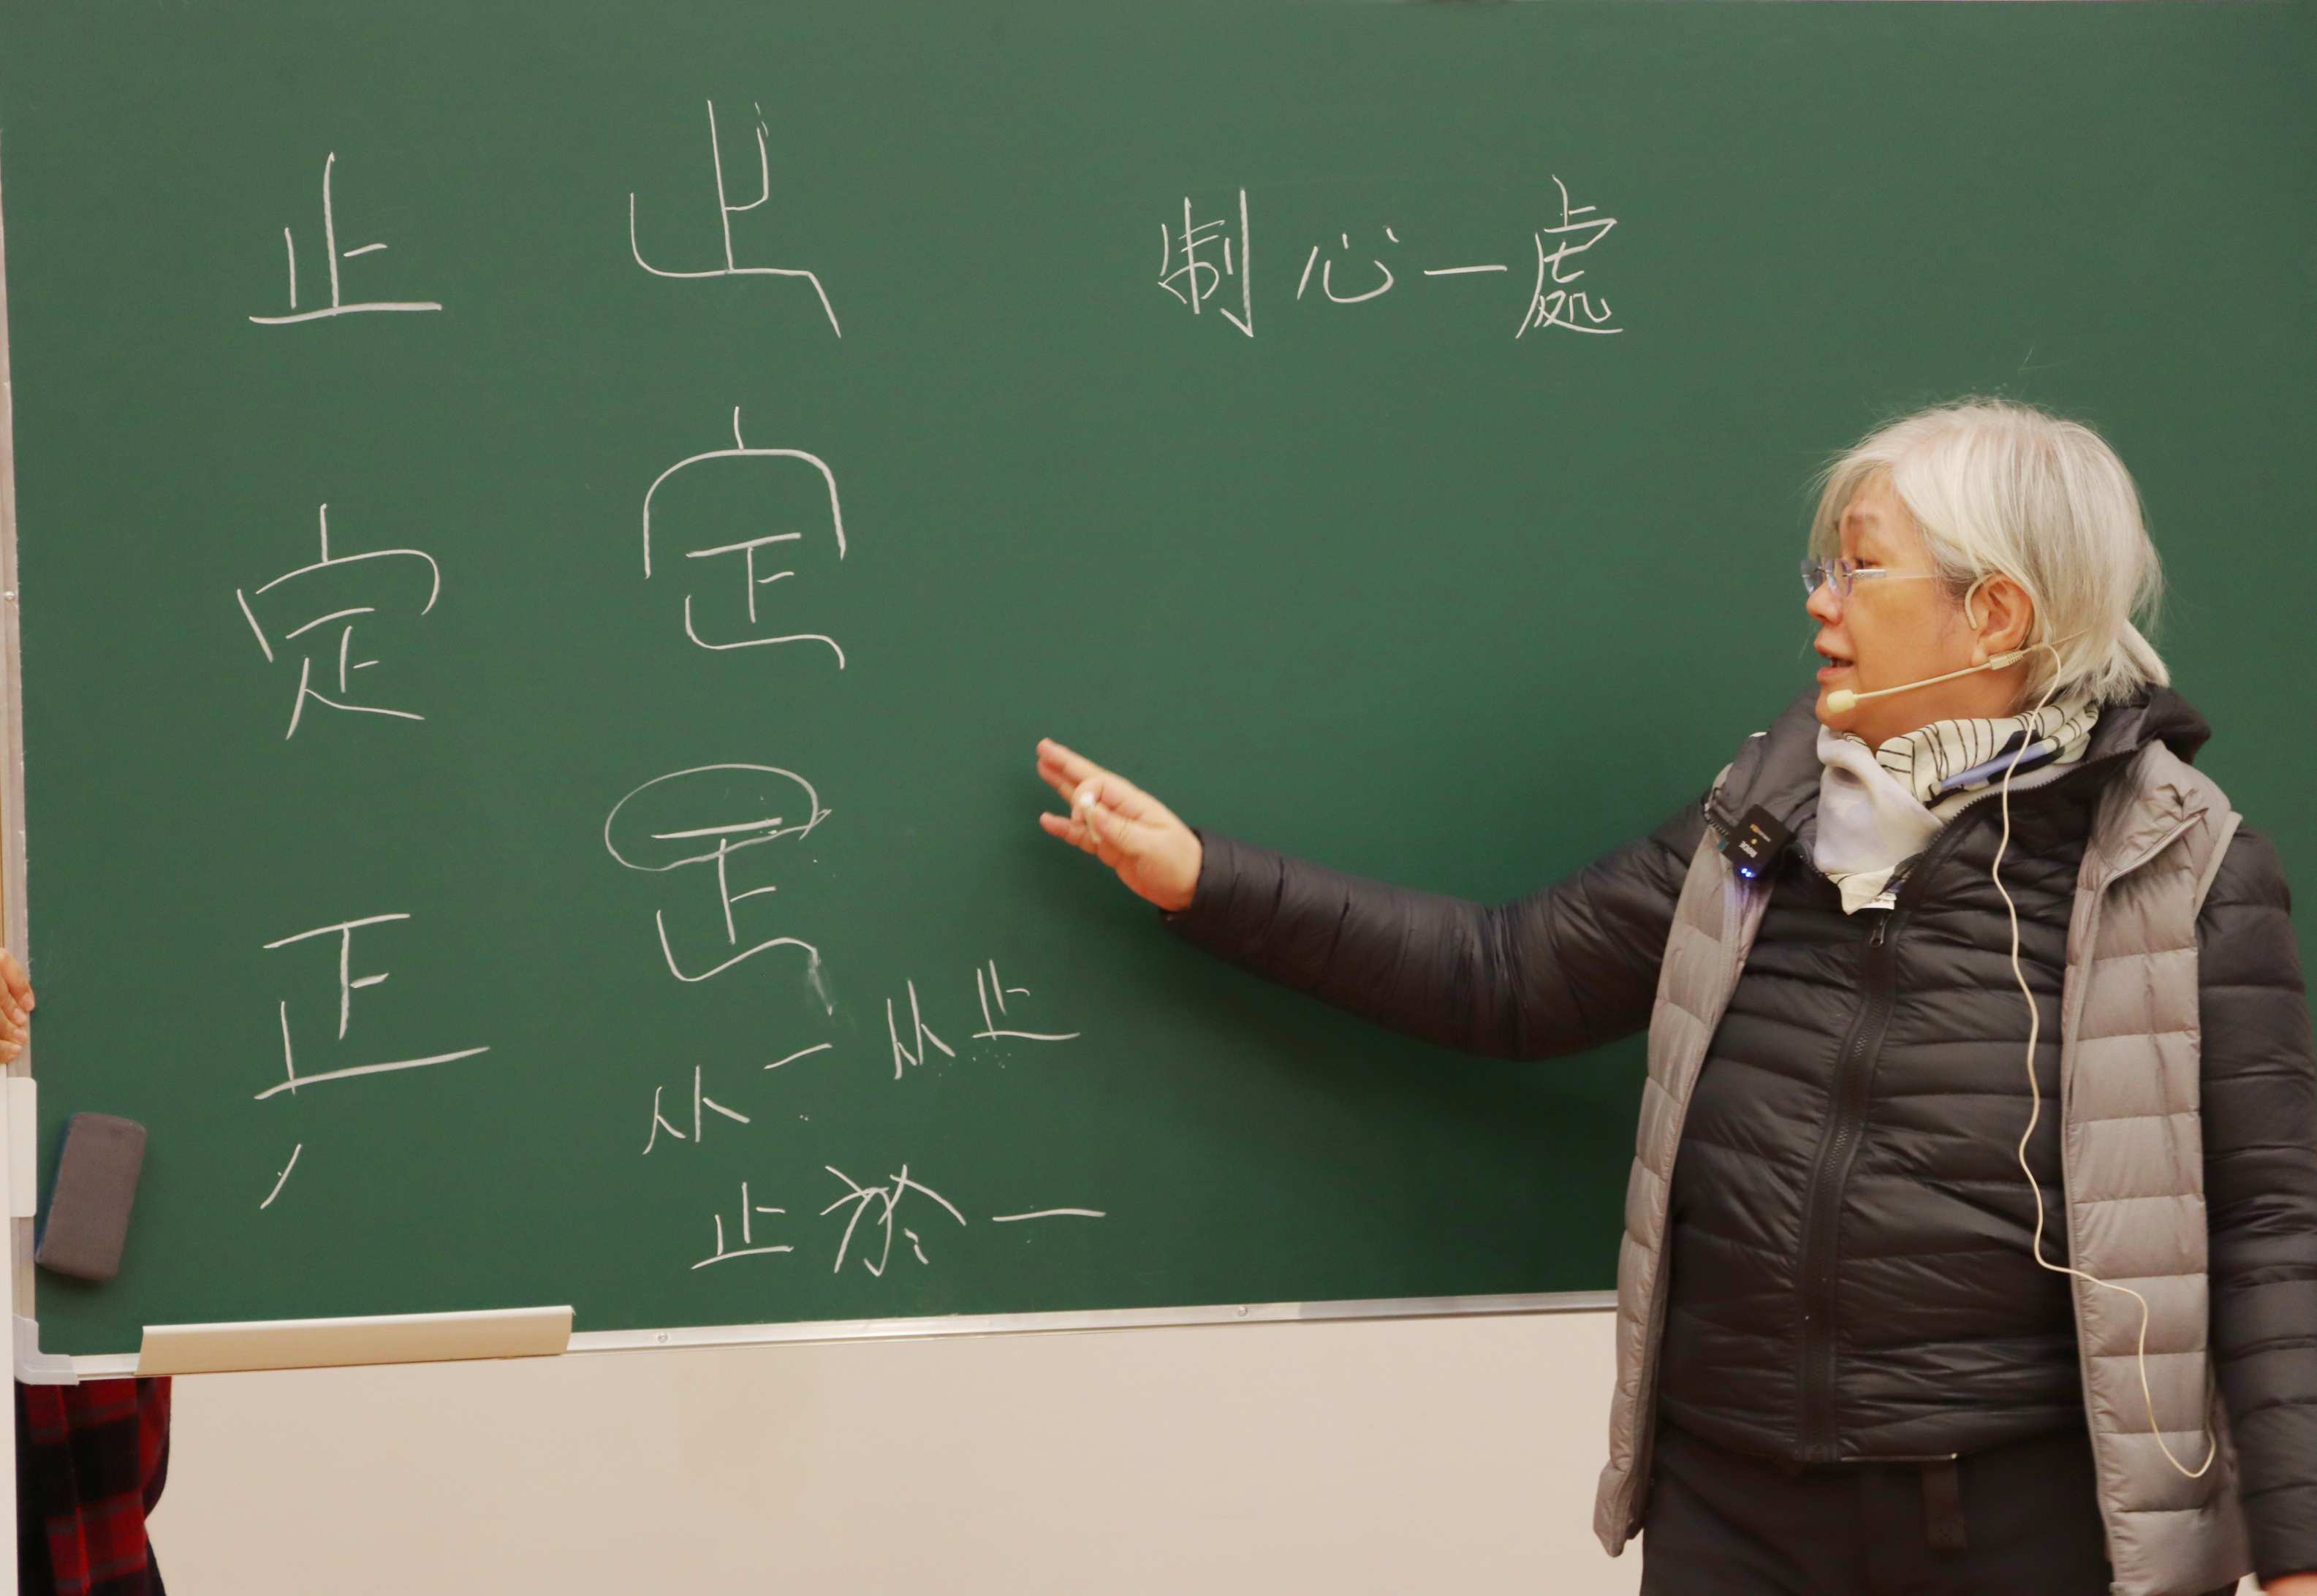 止 止 制心一處
定 定
正 正
从一 从止
止於一